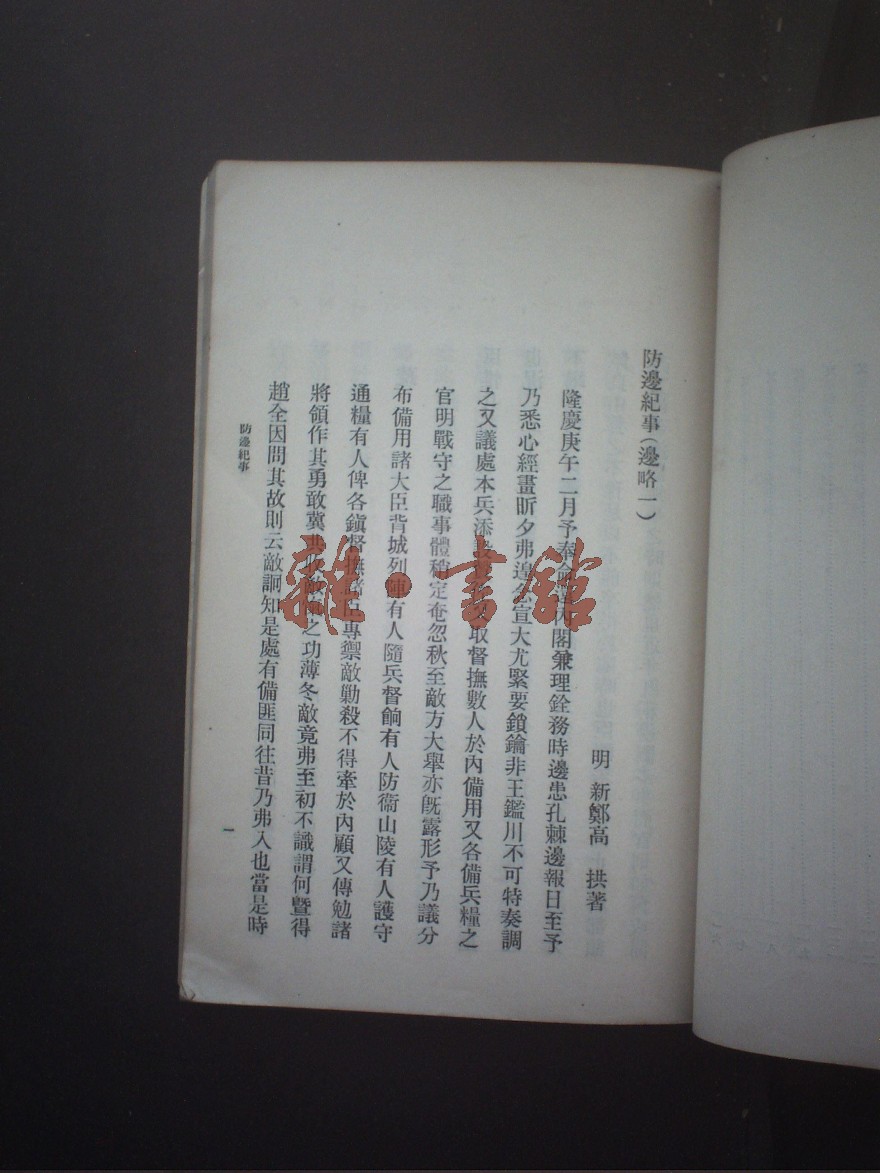 防邊紀事(邊略一)
明 新鄭高 拱著
隆慶庚午二月予奉 內閣兼理銓務時邊患孔棘邊報日至予
乃悉心經畫昕夕弗遑 宣大尤緊要鎖鑰非王鑑川不可特奏調
之又議處本兵添設 取督撫數人於內備用又各備兵糧之
官明戰守之職事體稍定奄忽秋至敵方大舉亦旣露形予乃議分
布備用諸大臣背城列陣有人隨兵督餉有人防衞山陵有人護守
通糧有人俾各鎭督撫諸臣專禦敵勦殺不得牽於內顧又傳勉諸
將領作其勇敢冀 之功薄冬敵竟弗至初不識謂何暨得
趙全因問其故則云敵詗知是處有備匪同往昔乃弗入也當是時
防邊紀事
一
雜·書館